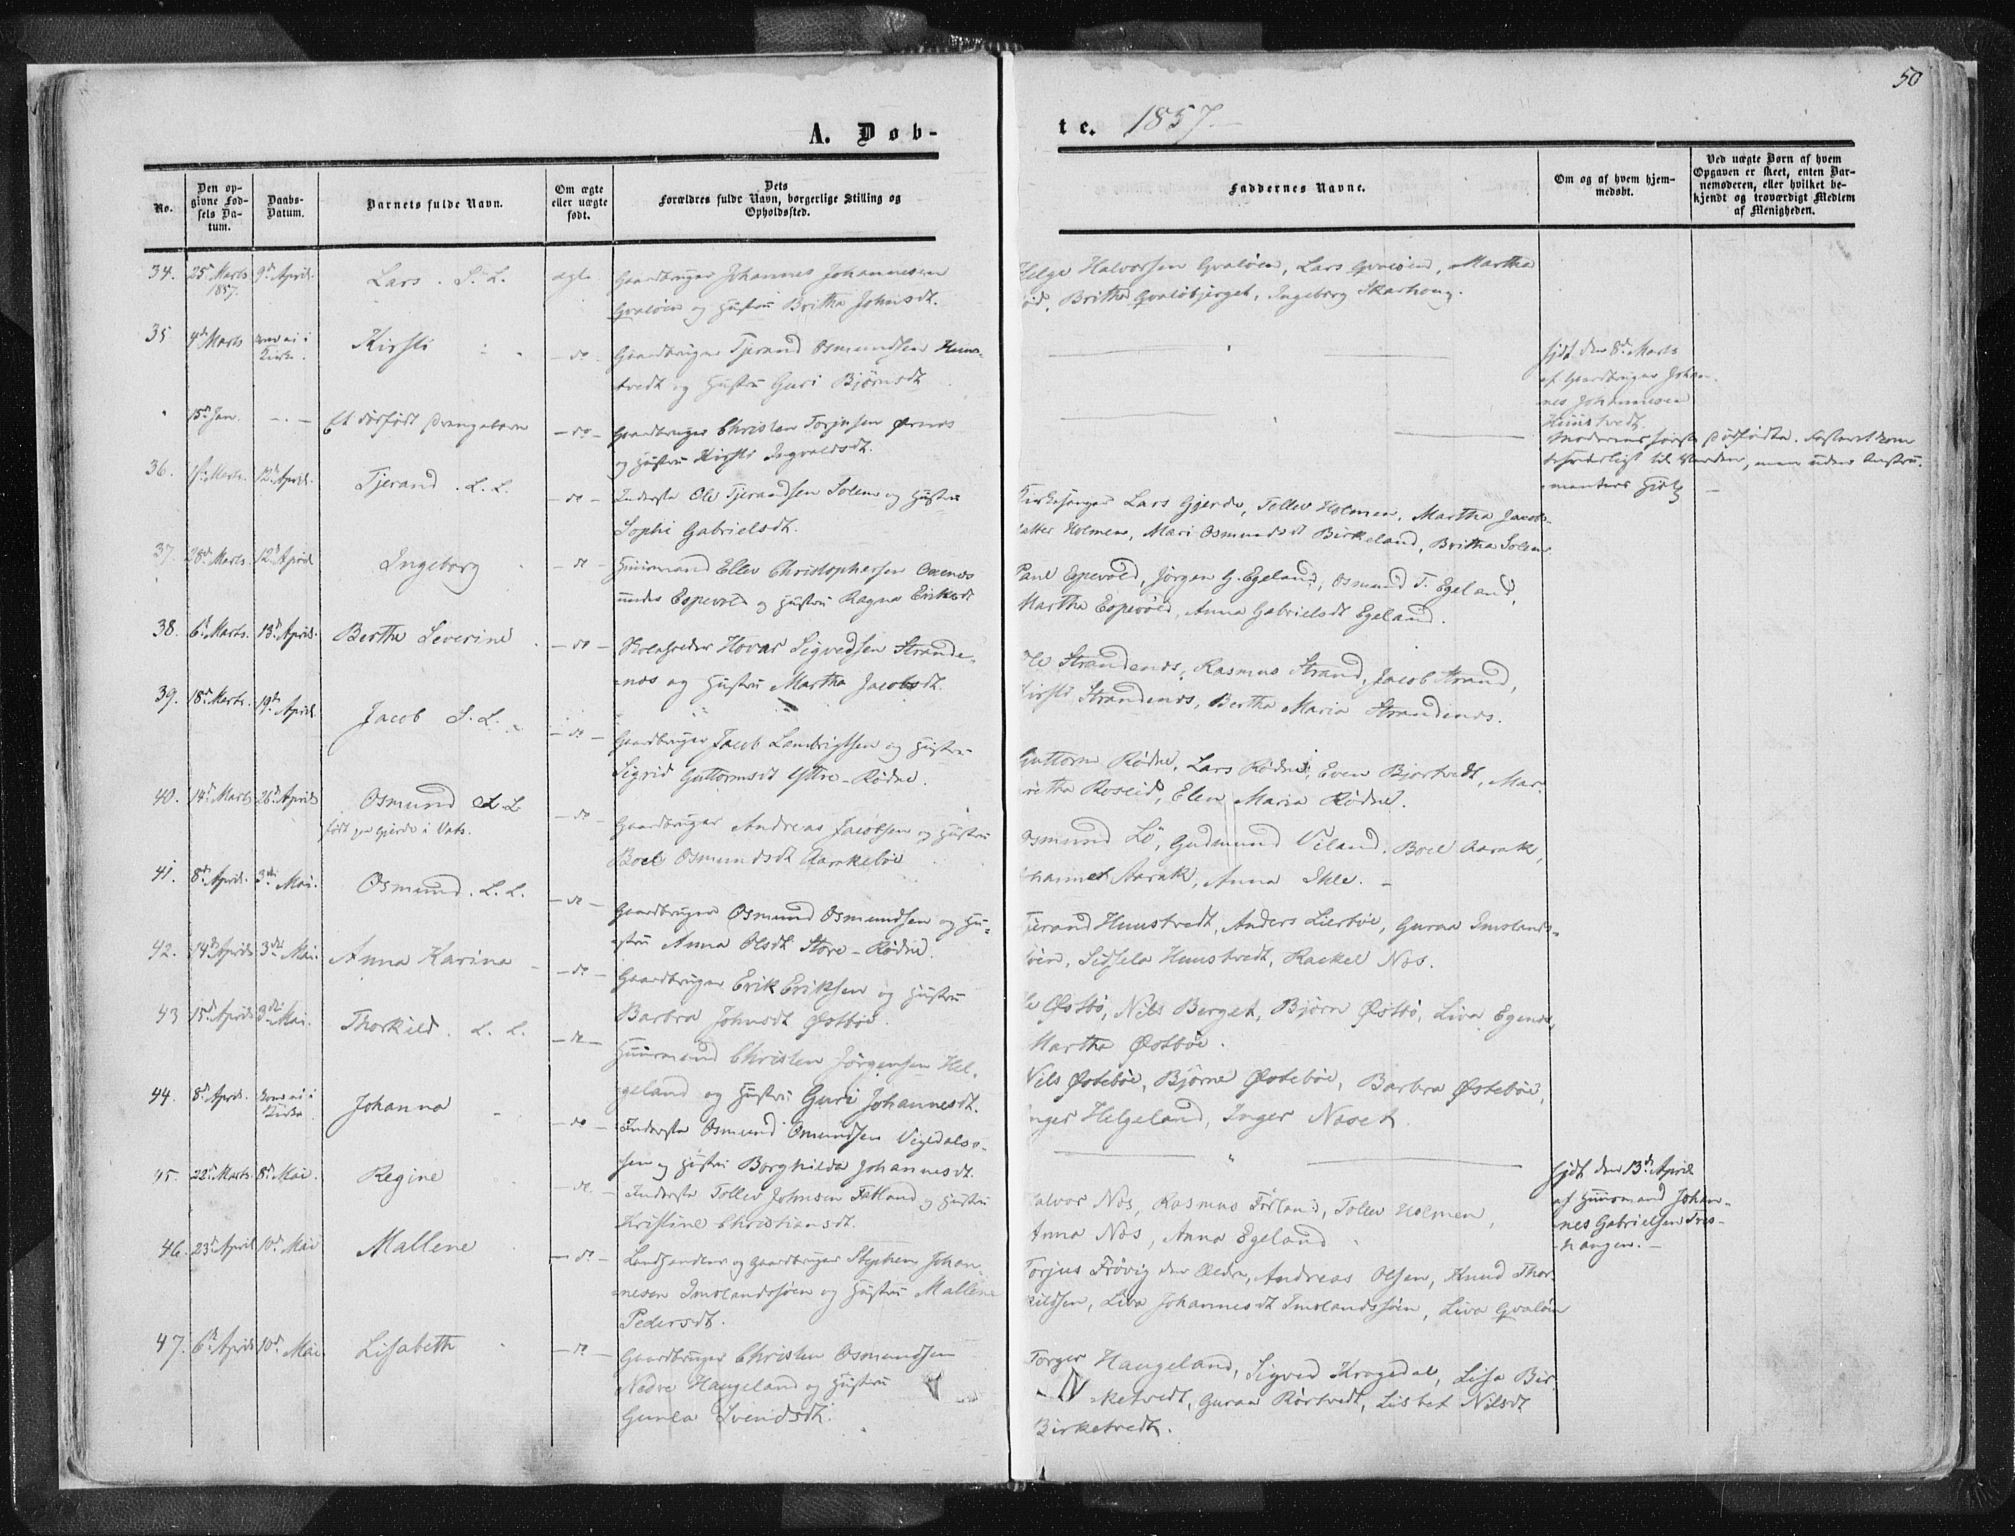 50
A. Døb-
te. 1857.
No.
Den op-
givne Fød-
sels Da-
tum.
Daabs-
Datum.
Barnets fulde Navn.
Om ægte
eller uægte
født.
Dets
Forældres fulde Navn, borgerlige Stilling og
Opholdssted.
Faddernes Navne.
Om og af hvem hjem-
medøbt.
Ved uægte Børn af hvem
Opgaven er skeet, enten Bar-
nemoderen, eller hvilket be-
kjendt og troværdigt Medlem
af Menigheden.
34. 25de Marts 1857. 9de April. Lars. S. L. ægte
Gaardbruger Johannes Johannesen
Qvaløen og Hustru Britha Johnsdt.
Helge Halvorsen Qvaløen, Lars Qvaløen, Martha
Britha Qvaløbjerget, Ingeborg Skarhoug.
35 4de Marts Kirke. Kirsti - do -
Gaardbruger Tjerand Osmundsen Huus-
tvedt og Hustru Guri Bjørnsdt
hjdt den 8de Marts
af Gaardbruger Johan-
nes Johannesen
Huustvedt.
15de Jan. Et dødfødt Drengebarn - do -
Gaardbruger Christen Torjusen Ørnes
og Hustru Kirsti Ingvaldsdt.
Moderens første Dødfødte.
til Verden, men uden Instru-
menters Hjelp
36. Marts. 12te April. Tjerand. L. L. - do -
Inderste Ole Tjerandsen Solem og Hustru
Sophi Gabrielsdt.
Kirkesanger Lars Gjerde, Tollev Holmen, Martha Jacobs-
datter Holmen, Mari Osmundsdt Birkeland, Britha Solem
37. 28de Marts. 12te April Ingeborg - do -
Huusmand Ellev Christophersen Oxenes
under Espevold og Hustru Ragna Eriksdt
Paul Espevold, Jørgen G. Egeland, Osmund T. Egeland,
Martha Espevold, Anna Gabrielsdt Egeland.
38. 6te Marts. 13de April. Berthe Severine - do -
Skoleholder Hovar Sigvedsen Strande-
nes og Hustru Martha Jacobsdt.
Ole Strandenes, Rasmus Strand, Jacob Strand,
Kirsti Strandenes, Bertha Maria Strandenes.
39. 18de Marts. 19de April. Jacob S. L. - do -
Gaardbruger Jacob Lambrigtsen og Hustru
Sigrid Guttormsdt Yttre-Rødne.
Guttorm Rødne, Lars Rødne, Even Bjortvedt, Mar-
retha Roseid, Elen Maria Rødne.
40. 14de Marts 26de April Osmund L. L.
født paa Gjerde i Vats. - do -
Gaardbruger Andreas Jacobsen og Hustru
Boel Osmundsdt Aarekebøe
Osmund Lø, Gudmund Viland, Boel Aarak,
Johannes Aarak, Anna Ihle. -
41. 8de April. 3die Mai. Osmund. L. L. - do -
Gaardbruger Osmund Osmundsen og Hu-
stru Anna Olsdt Store-Rødne.
Tjerand Huustvedt, Anders Lierbøe, Guraa Imslands-
søen, Sidsela Huustvedt, Rachel Nes.
42. 14de April 3die Mai. Anna Karina - do -
Gaardbruger Erik Eriksen og Hustru
Barbra Johnsdt Østbøe.
Ole Østbø, Nils Berget, Bjørn Østbø, Liva Egenes,
Martha Østbøe.
43 15de April 3die Mai. Thorkild. L. L. - do -
Huusmand Christen Jørgensen Hel-
geland og Hustru Guri Johannesdt.
Nils Østebøe, Bjørne Østebøe, Barbra Østebøe,
Inger Helgeland, Inger Neset.
44. 8de April. Kirke Johanna - do -
Inderste Osmund Omundsen Vigedals-
sen og Hustru Borghilda Johannesdt.
hjdt den 13de April
af Huusmand Johan-
nes Gabrielsen Tves-
hangen. -
45. 22de Marts 8de Mai. Regine - do -
Inderste Tollev Johnsen Fatland og Hustru
Kristine Christiansdt.
Halvor Nes, Rasmus Førland, Tollev Holmen,
Anna Nes, Anna Egeland
46. 23de April 10de Mai Mallene - do -
Landhandler og Gaardbruger Stephen Johan-
nesen Imslandssøen og Hustru Mallene
Pedersdt.
Torjus Frøvig den Ældre, Andreas Olsen, Knud Thor-
kildsen, Liva Johannesdt Imslandssøen, Liva Qvaløen
47. 6te April 10de Mai Lisabeth - do -
Gaardbruger Christen Osmundsen
Nedre Haugeland og Hustru
Gunla Svendsdt.
Torger Haugeland, Sigved Krogedal, Lisa Bir-
ketvedt, Guraa Rørtvedt, Lisbet Nilsdt
Birketvedt.